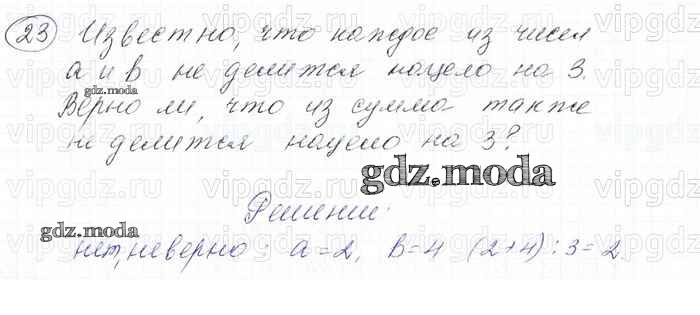 23 Известно, что каждое из чисел
а и в не делится нацело на 3.
gdz.moda
Верно ли, что их сумма также
не делится нацело на 3?
gdz.moda
Решение:
gdz.moda
нет, неверно: а=2, в=4 (2+4):3=2
vipgdz.ru